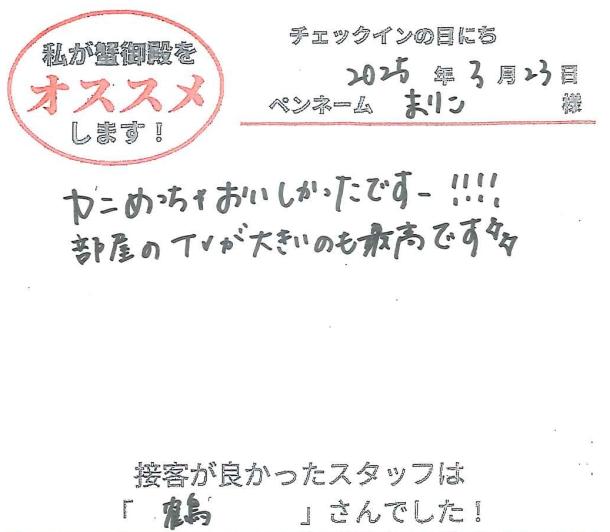 私が蟹御殿を
オススメ
します！
チェックインの日にち
2025 年 3 月 23 日
ペンネーム まりこ 様
カニめっちゃおいしかったですー!!!!
部屋のTVが大きいのも最高です
接客が良かったスタッフは
「 鶴 」さんでした！